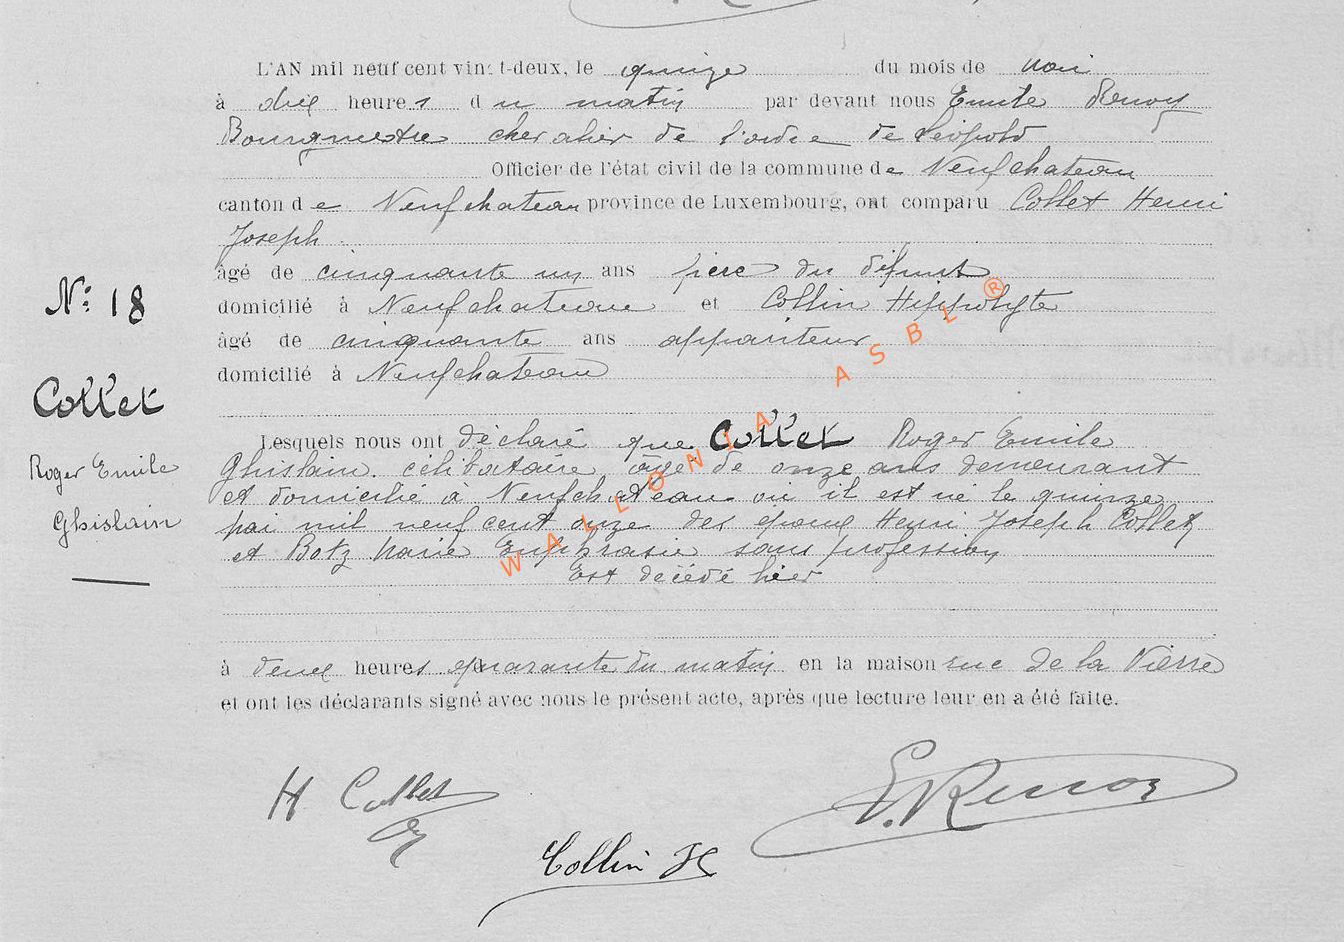 L'AN mil neuf cent vingt-deux, le quinze du mois de mai
à dix heures du matin par devant nous Emile Renoy
Bourgmestre chevalier de l'ordre de Léopold
Officier de l'état civil de la commune de Neufchateau
canton de Neufchateau province de Luxembourg, ont comparu Collet Henri
Joseph
âgé de cinquante un ans père du défunt
domicilié à Neufchateau et Collin Hippolyte
âgé de cinquante ans appariteur
domicilié à Neufchateau
N° 18
Collet
Roger Emile
Ghislain
Lesquels nous ont déclaré que Collet Roger Emile
Ghislain célibataire âgé de onze ans demeurant
et domicilié à Neufchateau où il est né le quinze
mil neuf cent onze des époux Henri Joseph Collet
et Botz Marie Euphrasie sans profession
Est décédé hier
à deux heures quarante du matin en la maison rue de la Vierre
et ont les déclarants signé avec nous le présent acte, après que lecture leur en a été faite.
H Collet
E. Renoy
Collin H
WALLONIA ASBL ®